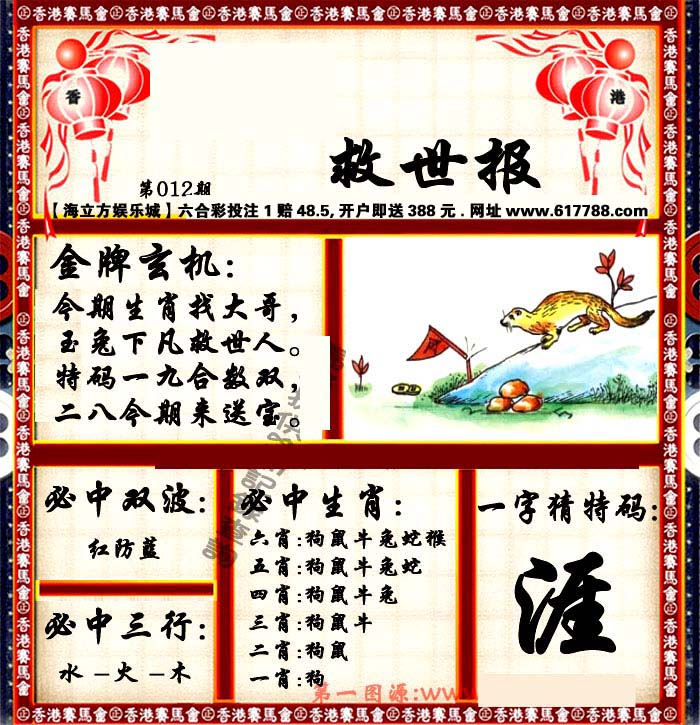 香港
救世报
第012期
【海立方娱乐城】六合彩投注1赔48.5,开户即送388元.网址www.617788.com
金牌玄机:
今期生肖找大哥,
玉兔下凡救世人。
特码一九合数双,
二八今期来送宝。
必中双波:
红防蓝
必中三行:
水–火–木
必中生肖:
六肖:狗鼠牛兔蛇猴
五肖:狗鼠牛兔蛇
四肖:狗鼠牛兔
三肖:狗鼠牛
二肖:狗鼠
一肖:狗
一字猜特码:
涯
第一图源:www
香港賽馬會